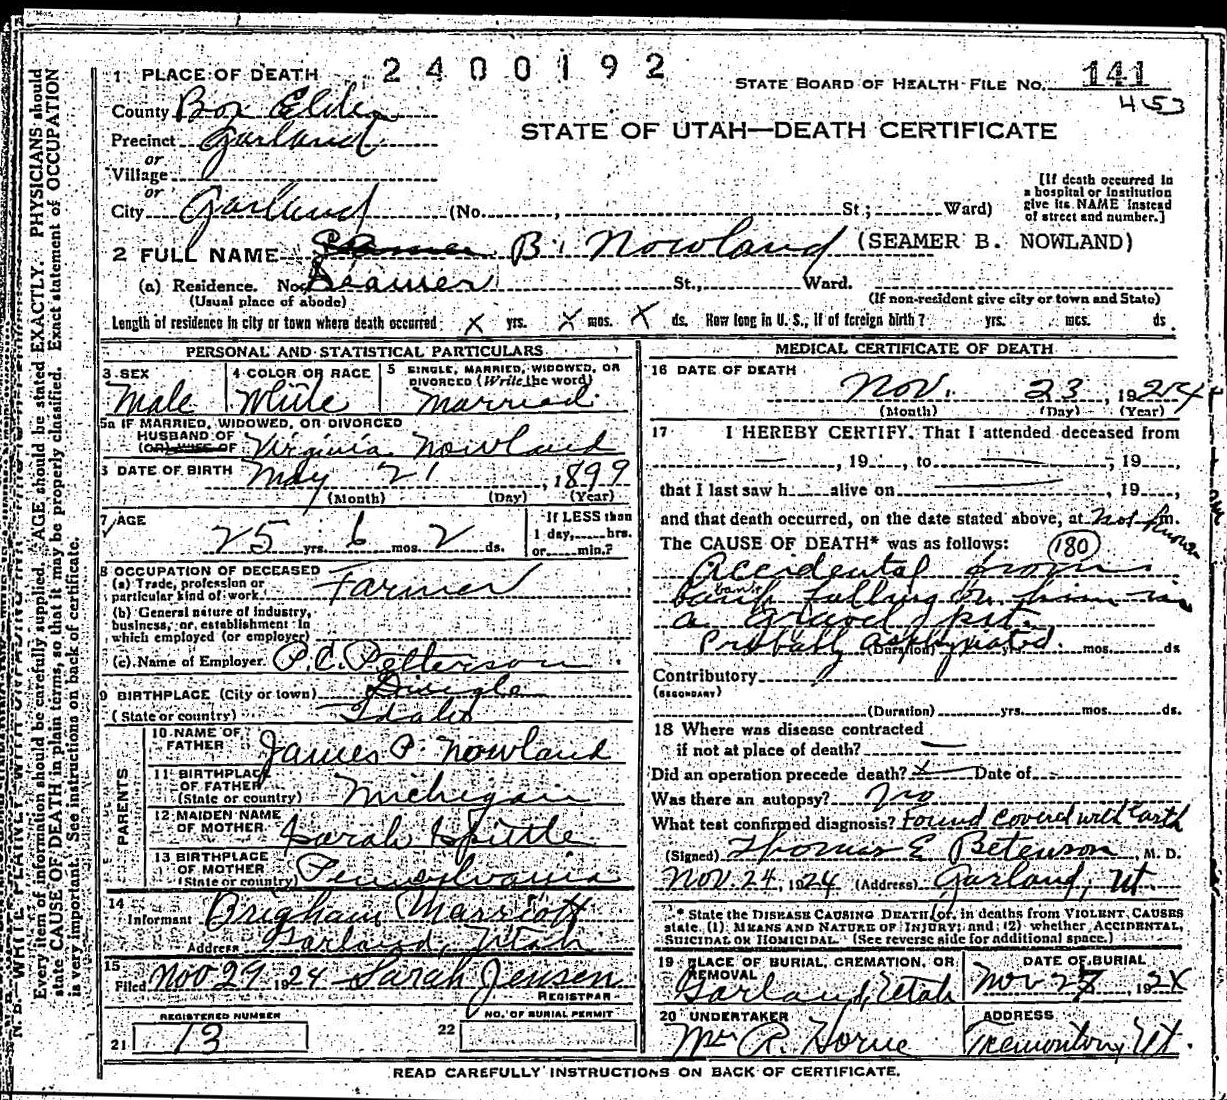 2400192
1 PLACE OF DEATH
STATE BOARD OF HEALTH-FILE NO. 141
453
County Box Elder
STATE OF UTAH—DEATH CERTIFICATE
Precinct Garland
or
Village
or
City Garland (No. , St.; Ward)
[If death occurred in
a hospital or institution
give its NAME instead
of street and number.]
2 FULL NAME B. Nowland (SEAMER B. NOWLAND)
(a) Residence. No. Seamer St., Ward.
(Usual place of abode)
(If non-resident give city or town and State)
Length of residence in city or town where death occurred X yrs. X mos. X ds. How long in U. S., if of foreign birth? yrs. mos. ds
PERSONAL AND STATISTICAL PARTICULARS
3 SEX
Male
4 COLOR OR RACE
White
5 SINGLE, MARRIED, WIDOWED, OR
DIVORCED (Write the word)
Married
5a IF MARRIED, WIDOWED, OR DIVORCED
HUSBAND OF
(OR) WIFE OF Virginia Nowland
6 DATE OF BIRTH May 21, 1899
(Month) (Day) (Year)
7 AGE
25 yrs. 6 mos. 2 ds.
If LESS than
1 day, hrs.
or min.?
8 OCCUPATION OF DECEASED
(a) Trade, profession or
particular kind of work Farmer
(b) General nature of industry,
business, or establishment in
which employed (or employer)
(c) Name of Employer P.C. Petterson
9 BIRTHPLACE (City or town)
(State or country) Idaho
PARENTS
10 NAME OF
FATHER James P. Nowland
11 BIRTHPLACE
OF FATHER
(State or country) Michigan
12 MAIDEN NAME
OF MOTHER Sarah Spittle
13 BIRTHPLACE
OF MOTHER
(State or country) Pennsylvania
14
Informant Brigham Marriott
Address Garland, Utah
15
Filed Nov 29 1924 Sarah Jensen
REGISTRAR
REGISTERED NUMBER
21 13
22 NO. OF BURIAL PERMIT
MEDICAL CERTIFICATE OF DEATH
16 DATE OF DEATH
Nov. 23, 1924
(Month) (Day) (Year)
17 I HEREBY CERTIFY, That I attended deceased from
, 19 , to , 19 ,
that I last saw h alive on , 19 ,
and that death occurred, on the date stated above, at Not Known m.
The CAUSE OF DEATH* was as follows: 180
Accidental from
bank falling on him in
a gravel pit.
Probably asphyxiated.
(Duration) yrs. mos. ds
Contributory
(SECONDARY)
(Duration) yrs. mos. ds.
18 Where was disease contracted
if not at place of death?
Did an operation precede death? X Date of
Was there an autopsy? No
What test confirmed diagnosis? Found covered with Earth
(Signed) Thomas E Betenson, M. D.
Nov. 24, 1924 (Address) Garland, Ut.
* State the DISEASE CAUSING DEATH, or, in deaths from VIOLENT CAUSES
state (1) MEANS AND NATURE OF INJURY; and (2) whether ACCIDENTAL,
SUICIDAL OR HOMICIDAL. (See reverse side for additional space.)
19 PLACE OF BURIAL, CREMATION, OR
REMOVAL
Garland, Utah
DATE OF BURIAL
Nov 27, 1924
20 UNDERTAKER
R. Horne
ADDRESS
Tremonton, Ut.
READ CAREFULLY INSTRUCTIONS ON BACK OF CERTIFICATE.
Every item of information should be carefully supplied. AGE should be stated EXACTLY. PHYSICIANS should
state CAUSE OF DEATH in plain terms, so that it may be properly classified. Exact statement of OCCUPATION
is very important. See instructions on back of certificate.